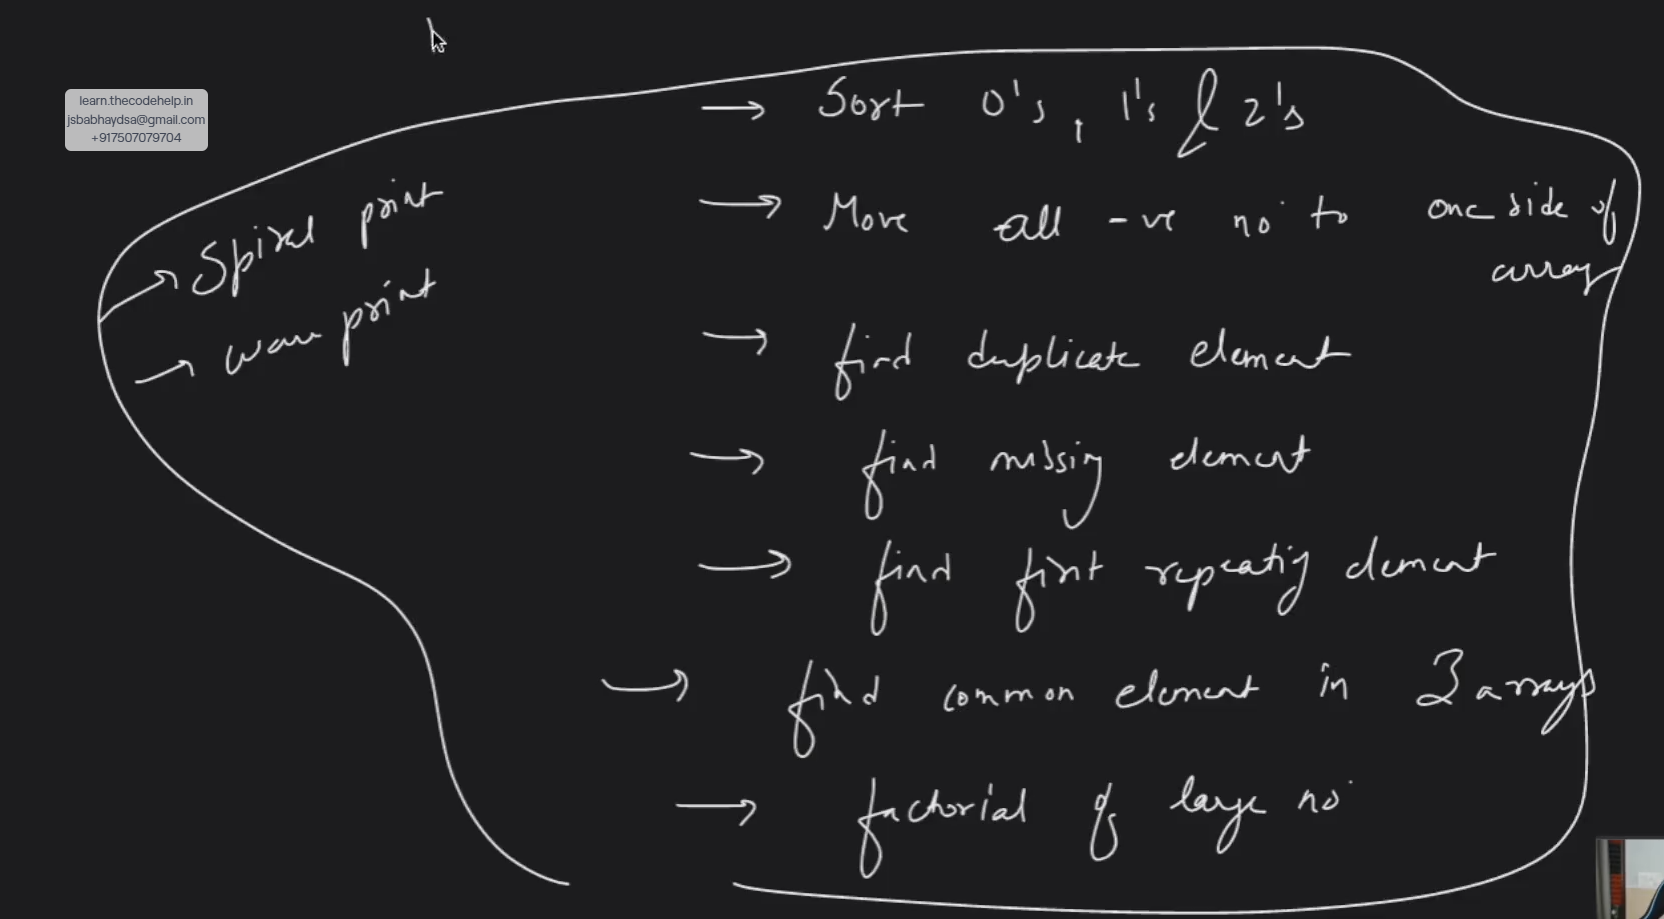 learn.thecodehelp.in
jsbabhaydsa@gmail.com
+917507079704
→ Spiral print
→ wave print
→ Sort 0's, 1's & 2's
→ Move all -ve no to one side of
array
→ find duplicate element
→ find missing element
→ find first repeating element
→ find common element in 3 arrays
→ factorial of large no